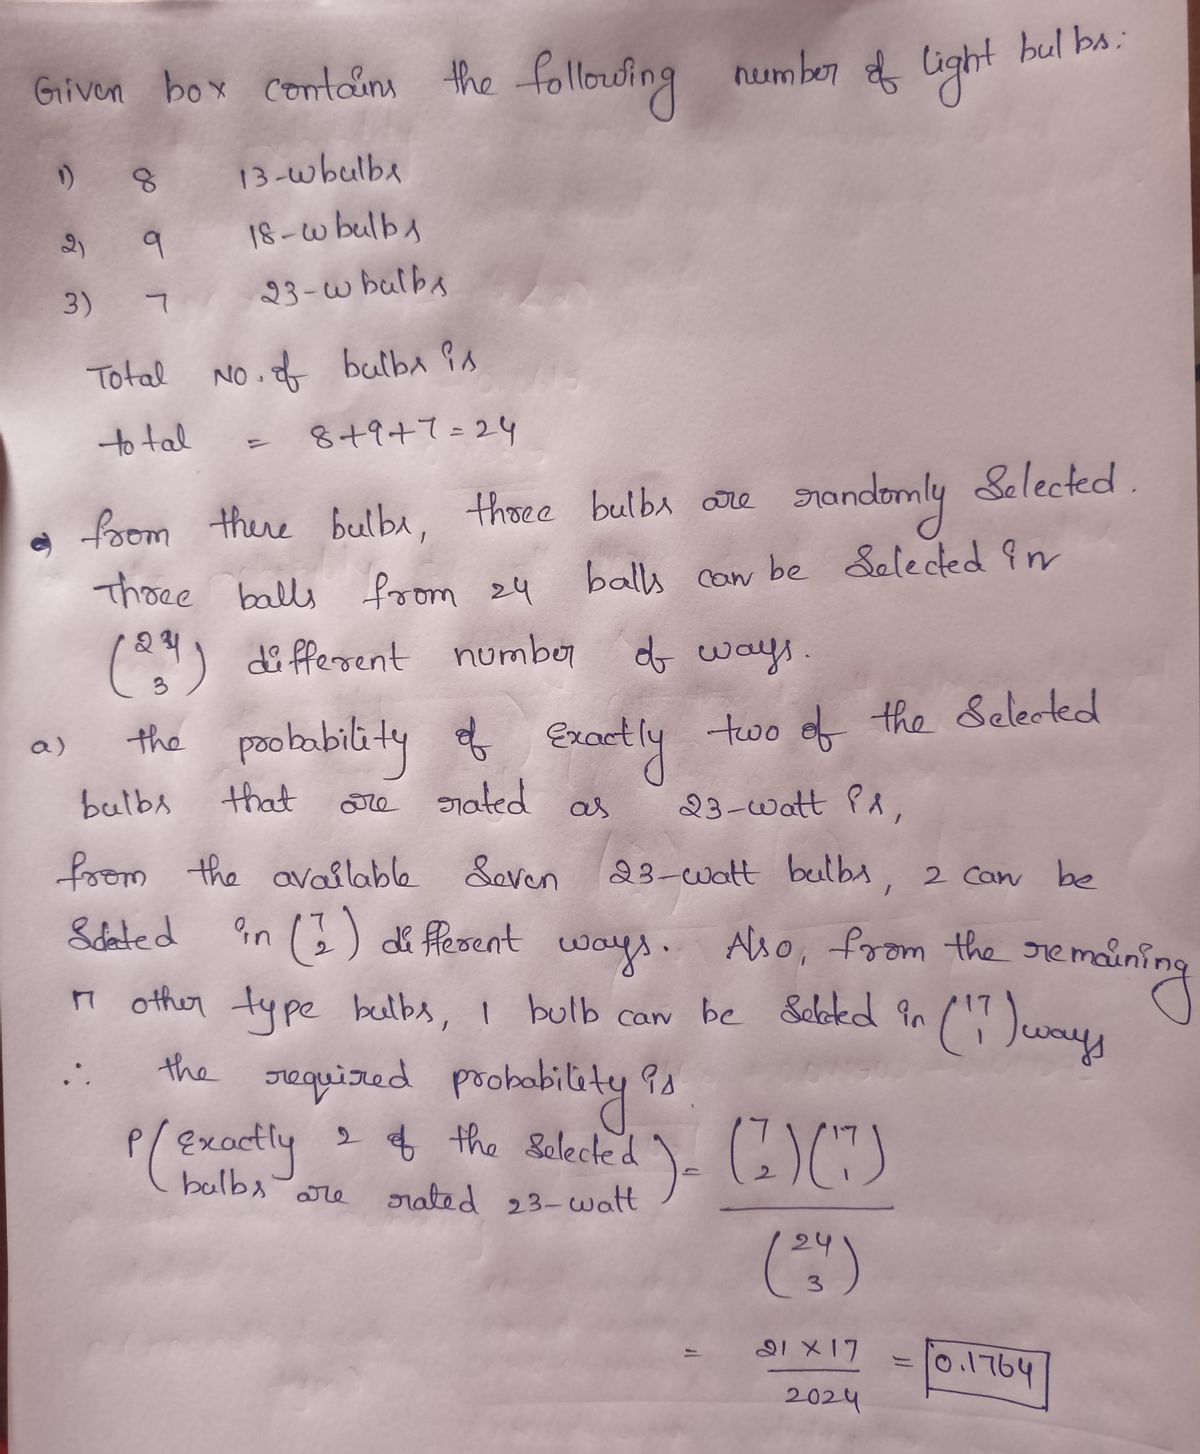 Given box contains the following number of light bulbs:
1) 8 13-w bulbs
2) 9 18-w bulbs
3) 7 23-w bulbs
Total No. of bulbs is
total = 8+9+7=24
from these bulbs, three bulbs are randomly selected.
Three balls from 24 balls can be selected in
(24 3) different number of ways.
a) the probability of Exactly two of the selected
bulbs that are rated as 23-watt is,
from the available Seven 23-watt bulbs, 2 can be
Selected in (7 2) different ways. Also, from the remaining
17 other type bulbs, 1 bulb can be Selected in (17 1) ways
∴ the required probability is
P(Exactly 2 of the Selected bulbs are rated 23-watt) = (7 2)(17 1)
(24 3)
= 21 × 17 / 2024 = 0.1764